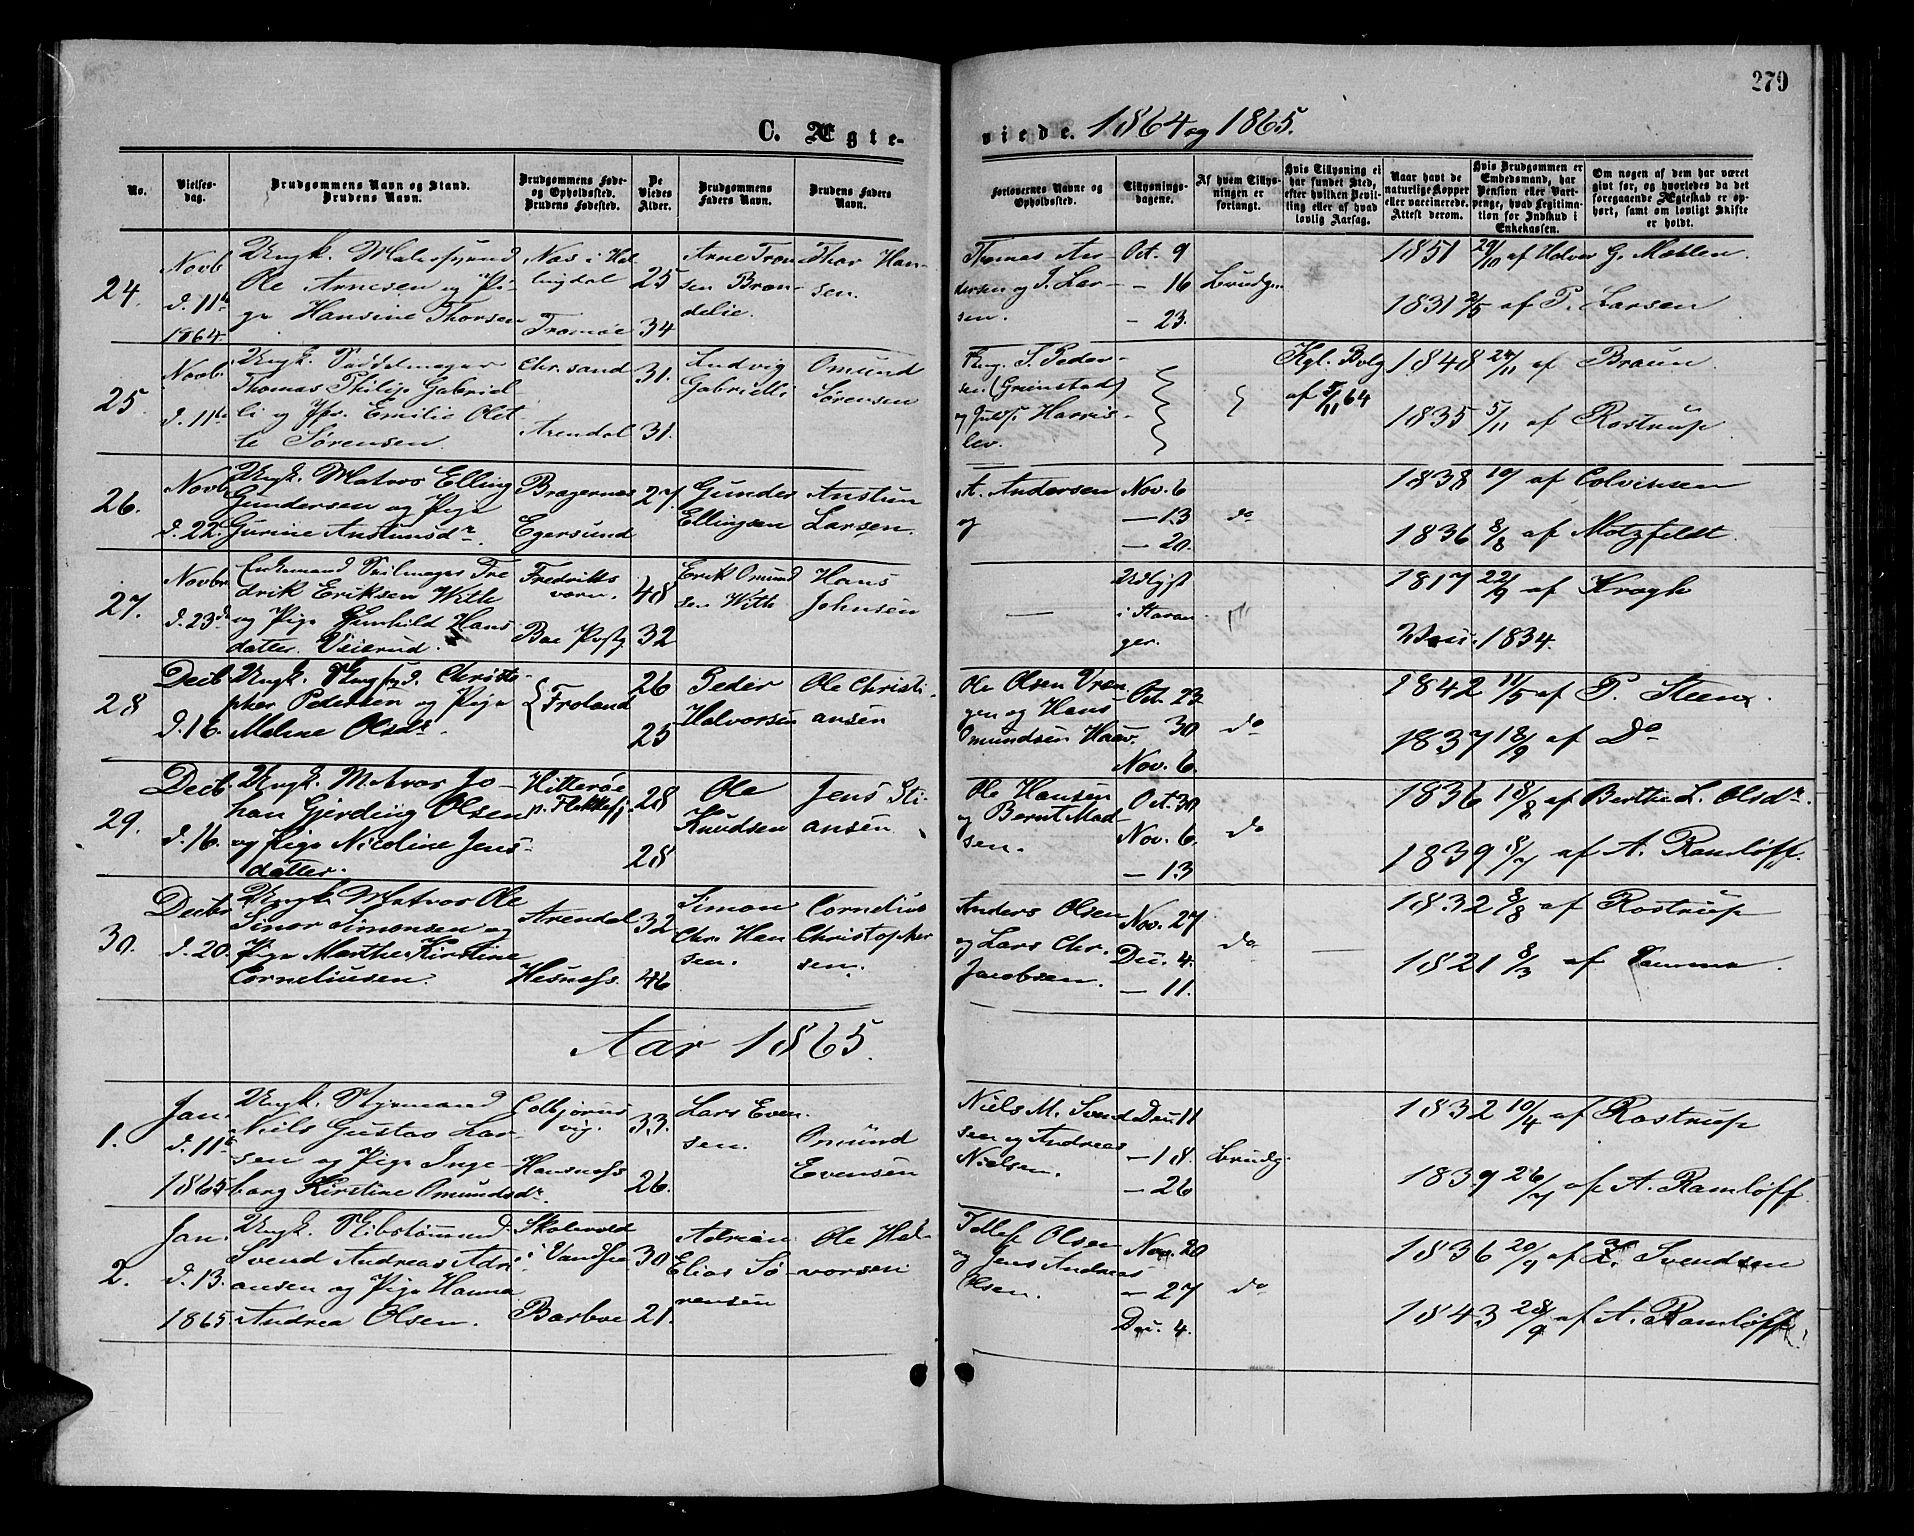 279
C. Ægte-
viede. 1864 og 1865.
No.
Vielses-
dag.
Brudgommens Navn og Stand.
Brudens Navn.
Brudgommens Føde-
og Opholdssted.
Brudens Fødested.
De
Viedes
Alder.
Brudgommens
Faders Navn.
Brudens Faders
Navn.
Forlovernes Navne og
Opholdssted.
Tillysnings-
dagene.
Af hvem Tillys-
ningen er
forlangt.
Hvis Tillysning ei
har fundet Sted,
efter hvilken Bevil-
ling eller af hvad
lovlig Aarsag.
Naar havt de
naturlige Kopper
eller vaccinerede.
Attest derom.
Hvis Brudgommen er
Embedsmand, har
Pension eller Vart-
penge, hvad Legitima-
tion for Indskud i
Enkekassen.
Om nogen af dem har været
gift før, og hvorledes da det
foregaaende Ægteskab er op-
hørt, samt om lovligt Skifte
er holdt.
24.
Novb.
d. 11te
1864.
Ungk.
Ole Arnesen og Pi-
ge Hansine Thorsen
Nas i Hal-
lingdal
Tromøe
25
34
Arne Tron-
sen Bran-
delie.
Thor Han-
sen.
Thomas An-
dersen og T. Lar-
sen.
Oct. 9
- 16
- 23.
Brudg.
1851 29/10 af Halvor G. Mæhlen.
1831 2/5 af P. Larsen
25.
Novb.
d. 11te
Ungk.
Thomas Philip Gabriel-
li og Jfr. Emilie Olet-
te Sørensen.
Chr.sand
Arendal
31.
31.
Ludvig
Gabrielli
Omund
Sørensen
S. Peder-
sen (Grimstad)
og Harris-
lev.
Kgl. Bvlg
af 5/11 64
1848 24/11 af Braun
1835 5/11 af Rostrup
26.
Novb.
d. 22.
Ungk. Matros Elling
Gundersen og Pige
Gurine Anstunsdr.
Bragernæs
Egersund
27.
Gunder
Ellingsen
Anstun
Larsen.
A. Andersen
og
Nov. 6
- 13
- 20.
do
1838 af Colvinsen
1836 8/8 af Motzfeldt.
27.
Novbr.
d. 23de
Enkemand Seilmager Fre
drik Eriksen With
og Pige Gunhild Hans
datter Veierud.
Fredriks
værn.
Bae
48
32
Erik Omund
sen With
Hans
Johnsen
—
Udlyst
i Stavan
ger.
1817 22/9 af Krogh
1834.
28
Decb.
d. 16.
Ungk. Christo-
pher Pedersen og Pige
Malene Olsdr.
Froland
26
25
Peder
Halvorsen
Ole Christi-
ansen
Ole Olsen Vren
gen og Hans
Omundsen Haav.
Oct. 23
30
Nov. 6.
do
1842 11/5 af P. Steen.
1837 18/9 af Do
29.
Decb.
d. 16.
Ungk. Matros Jo-
han Gjerding Olsen
og Pige Nicoline Jens-
datter.
Hitterøe
p. Flekkefj.
28
28
Ole
Knudsen
Jens Sti-
ansen
Ole Hansen
og Bernt Mad-
sen.
Oct. 30
Nov. 6.
- 13
do
1836 18/8 af Berthe L. Olsdr.
1839 18/7 af A. Ramløff.
30.
Decbr
d. 20.
Ungk. Matros Ole
Einar Simonsen og
Pige Marthe Kirstine
Corneliusen.
Arendal
Hesnæs.
32
46
Simon
Chr. Han
sen.
Cornelius
Christopher
sen.
Anders Olsen
og Lars Chr.
Jacobsen.
Nov. 27
Dec. 4.
- 11.
do
—
1832 8/8 af Rostrup
1821 8/3 af Samme.
Aar 1865.
1.
Jan.
d. 11te
1865
Ungk. Styrmand
Niels Gustav Lar-
sen og Pige Inge-
borg Kirstine Omundsdr.
Colbjørns
vig.
Hansnæs
33.
26.
Lars Even
sen.
Omund
Evensen
Niels M. Svend
sen og Andreas
Nielsen.
Dec. 11
- 18.
- 26
Brudg.
1832 10/4 af Rostrup
1839 26/7 af A. Ramløff
2.
Jan.
d. 13.
1865
Ungk. Skibstømmand.
Svend Andreas Adri-
ansen og Pige Hanna
Andrea Olsen.
Skolevold
i Vandsøe
Barboe
30
21.
Adrian
Elias Sø-
rensen
Ole Hal-
vorsen
Tellef Olsen
og Jens Andreas
Olsen.
Nov. 20
- 27
Dec. 4.
do
1836 20/9 af Svendsen
1843 28/9 af A. Ramløff.